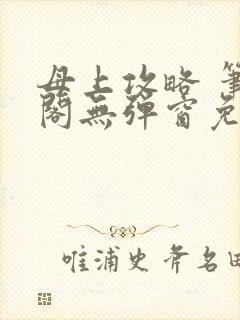 母上攻略 筆
閣無彈窗免
唯浦史斧名田